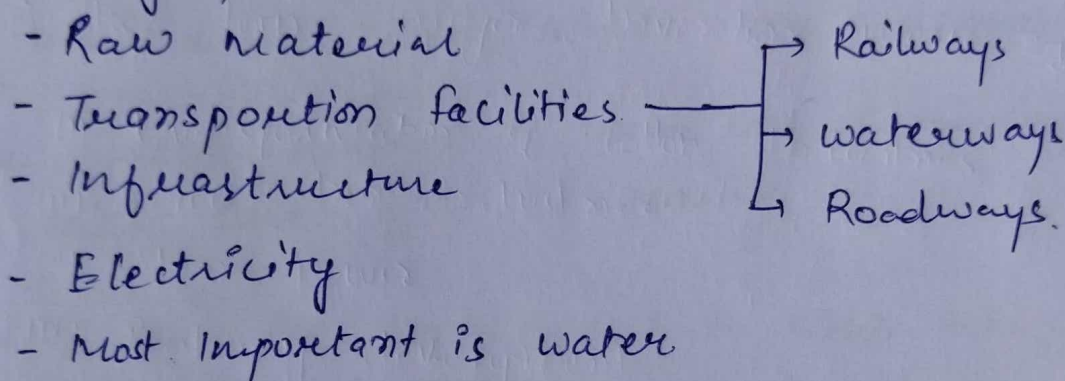 - Raw Material
- Transportion facilities → Railways
→ waterways
→ Roadways.
- Infrastructure
- Electricity
- Most Important is water